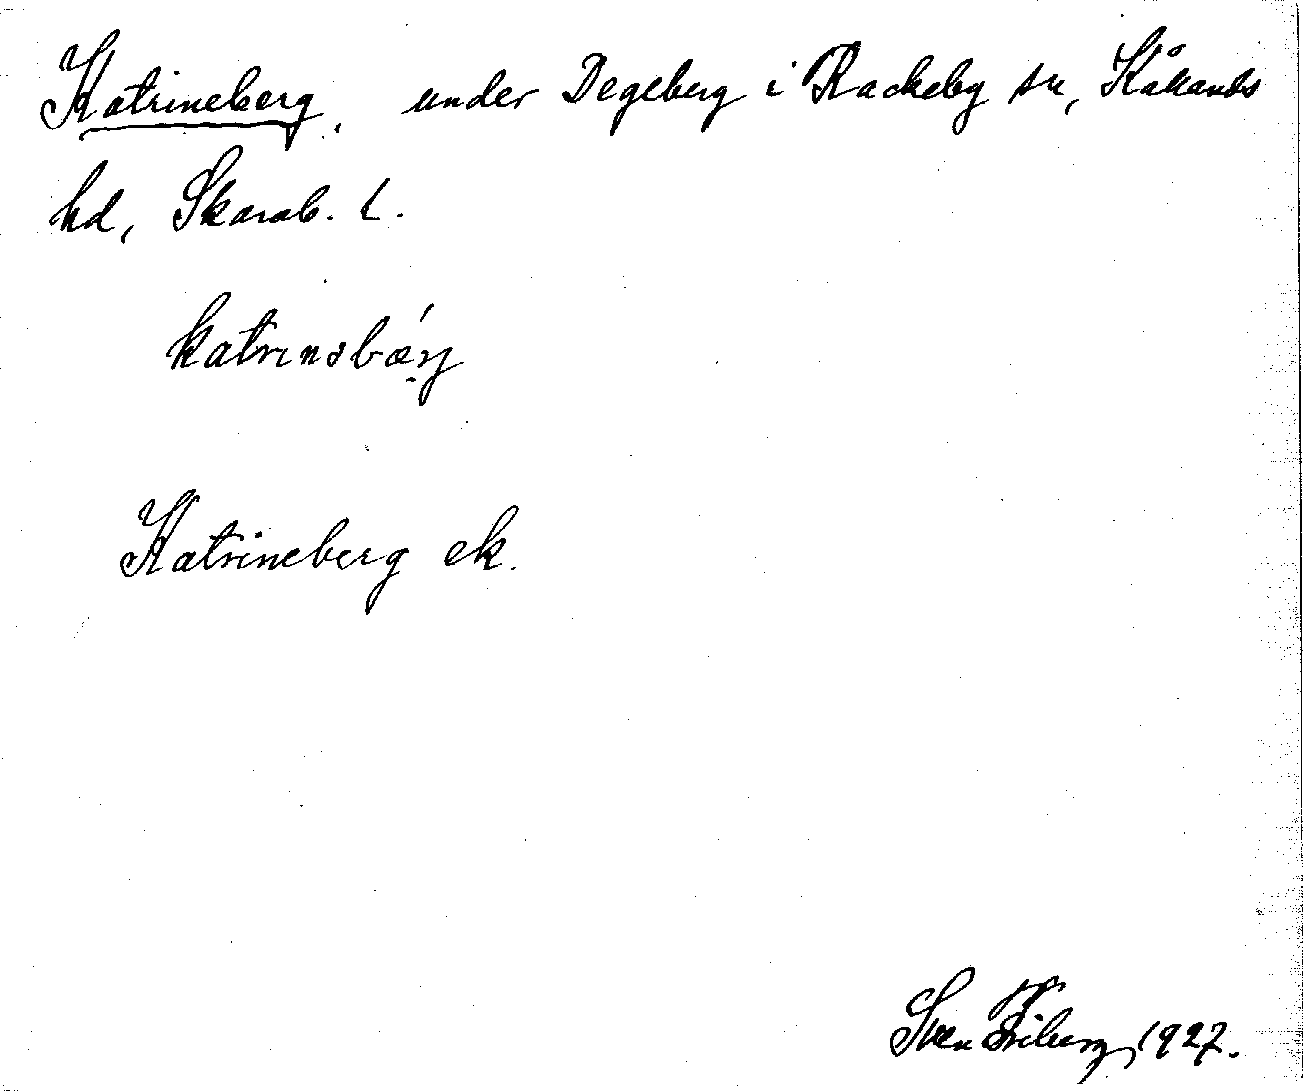 Katrineberg, under Degeberg i Rackeby sn, Kållands
hd, Skarab. l.
katrinəbæŕ̤j
Katrineberg ek.
Sven Friberg, 1927.